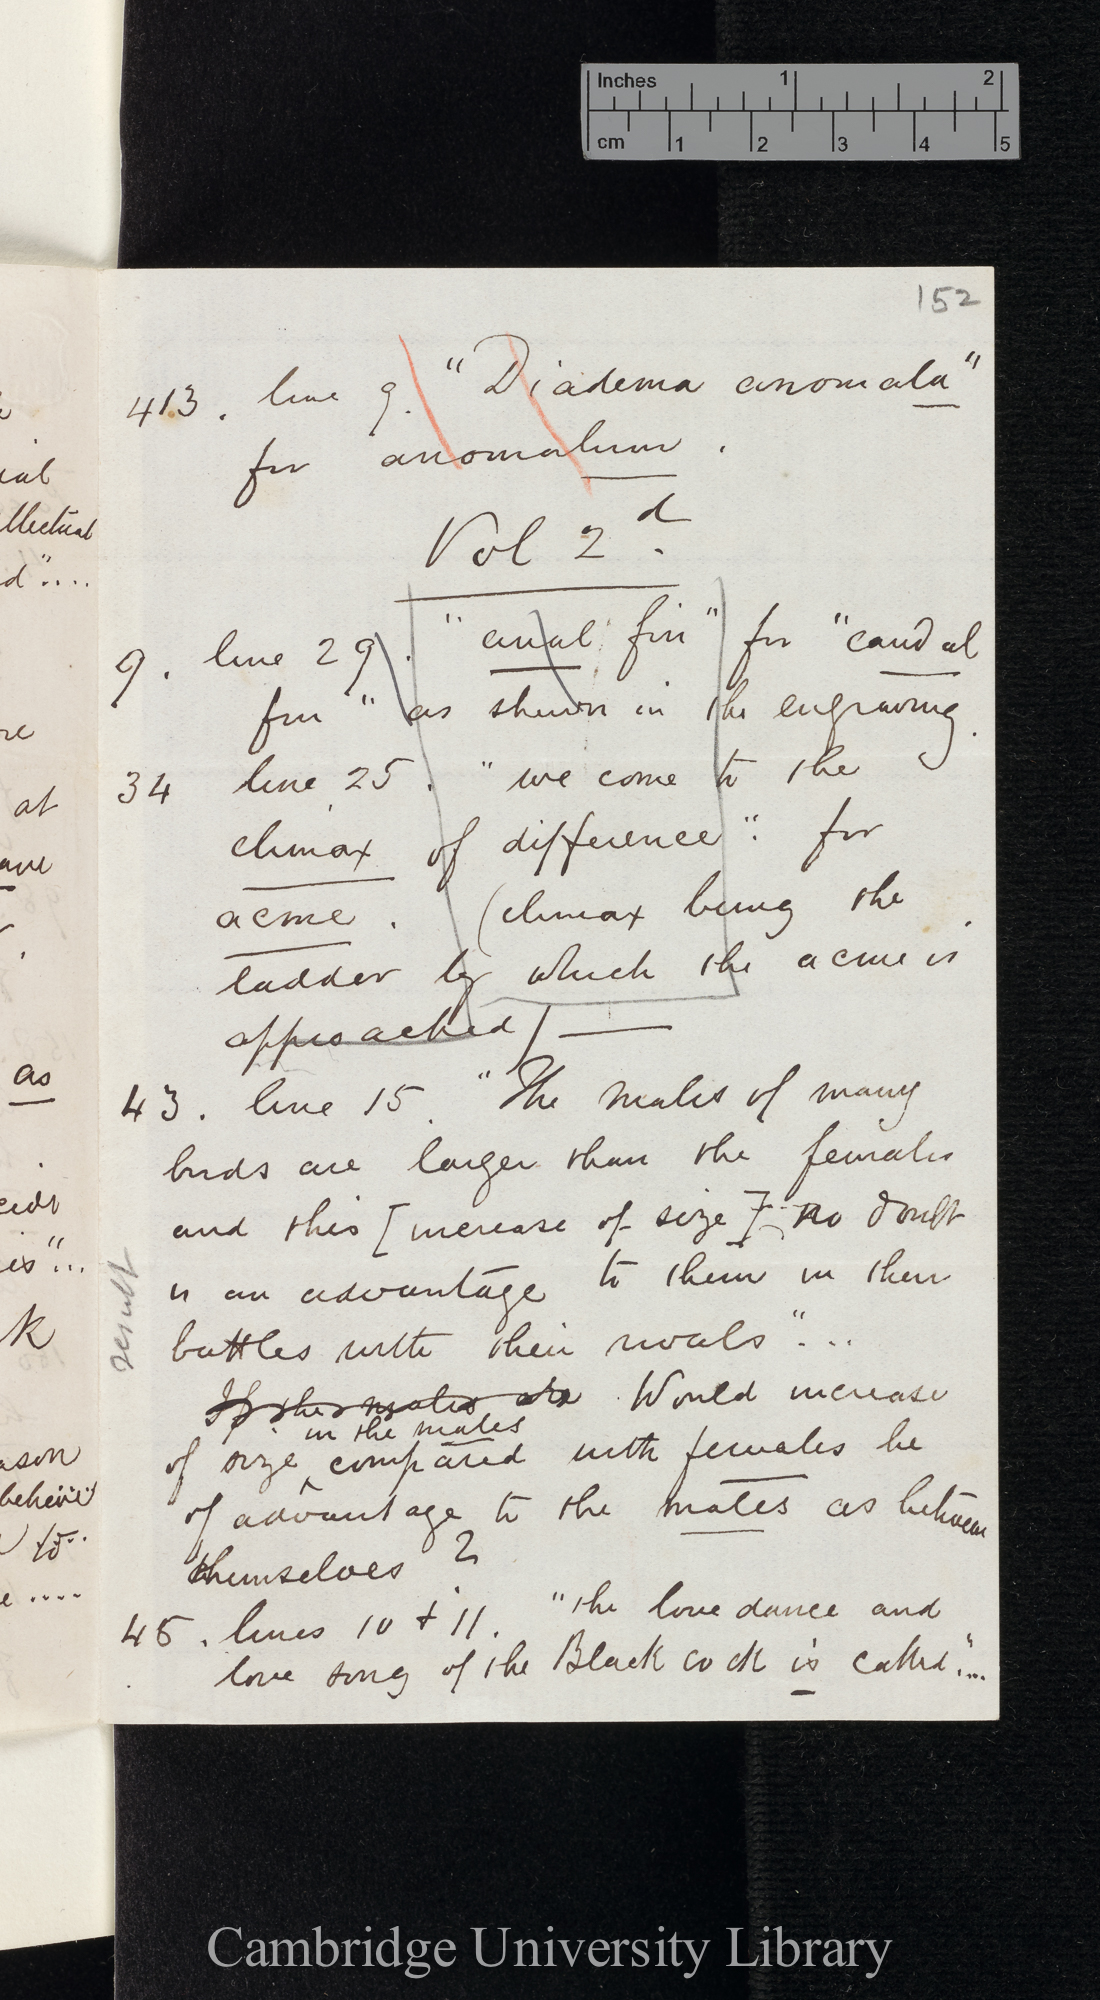 Inches 1 2
cm 1 2 3 4 5
152
413. line 9. "Diadema anomala"
for anomalum.
Vol 2d.
9. line 29. "anal fin" for "caudal
fin" as shewn in the engraving.
34 line 25. "we come to the
climax of difference": for
acme. (climax being the
ladder by which the acme is
approached) —
43. line 15. "The males of many
birds are larger than the females
and this [increase of size] no doubt
is an advantage to them in their
battles with their rivals"...
result
If the males are Would increase
in the males
of size compared with females be
of advantage to the males as between
themselves?
45. lines 10 + 11. "the love dance and
love song of the Black cock is called"...
ial
llectual
d"....
re
at
ave
as
is"...
k
ason
believed
to..
e ....
Cambridge University Library